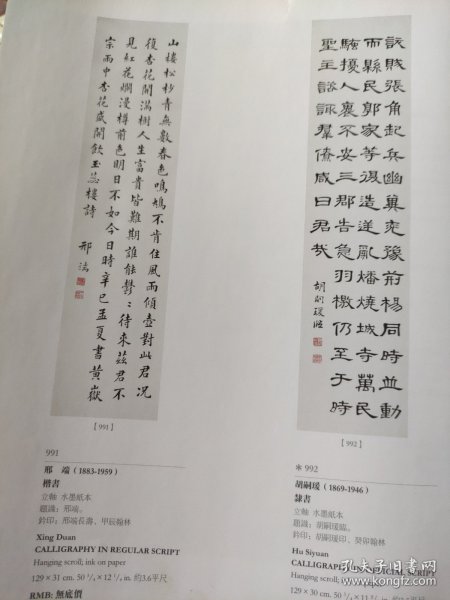 山樓松杪青無數春色鳴鳩不肯住風雨傾壺對此君況
復杏花開滿樹人生富貴皆難期誰能鬱鬱待來茲君不
見紅花爛漫樽前色明日不如今日時辛巳孟夏書黃嶽
宗雨中杏花盛開飲玉蕊樓詩 邢端
訞賊張角起兵幽冀兗豫荊楊同時並動
而縣民郭家等復造逆亂燔燒城寺萬民
騷擾人褢不安三郡告急羽檄仍至于時
聖主諮諏羣僚咸曰君哉
胡嗣瑗臨
【991】
【992】
991
邢 端(1883-1959)
楷書
立軸 水墨紙本
題識:邢端。
鈐印:邢端長壽、甲辰翰林
Xing Duan
CALLIGRAPHY IN REGULAR SCRIPT
Hanging scroll; ink on paper
129 × 31 cm. 50 3/4 × 12 1/4 in. 約3.6平尺
RMB: 無底價
* 992
胡嗣瑗(1869-1946)
隸書
立軸 水墨紙本
題識:胡嗣瑗臨。
鈐印:胡嗣瑗印、癸卯翰林
Hu Siyuan
CALLIGRAPHY IN OFFICIAL SCRIPT
Hanging scroll;
129 × 30 cm. 50
孔夫子旧书网